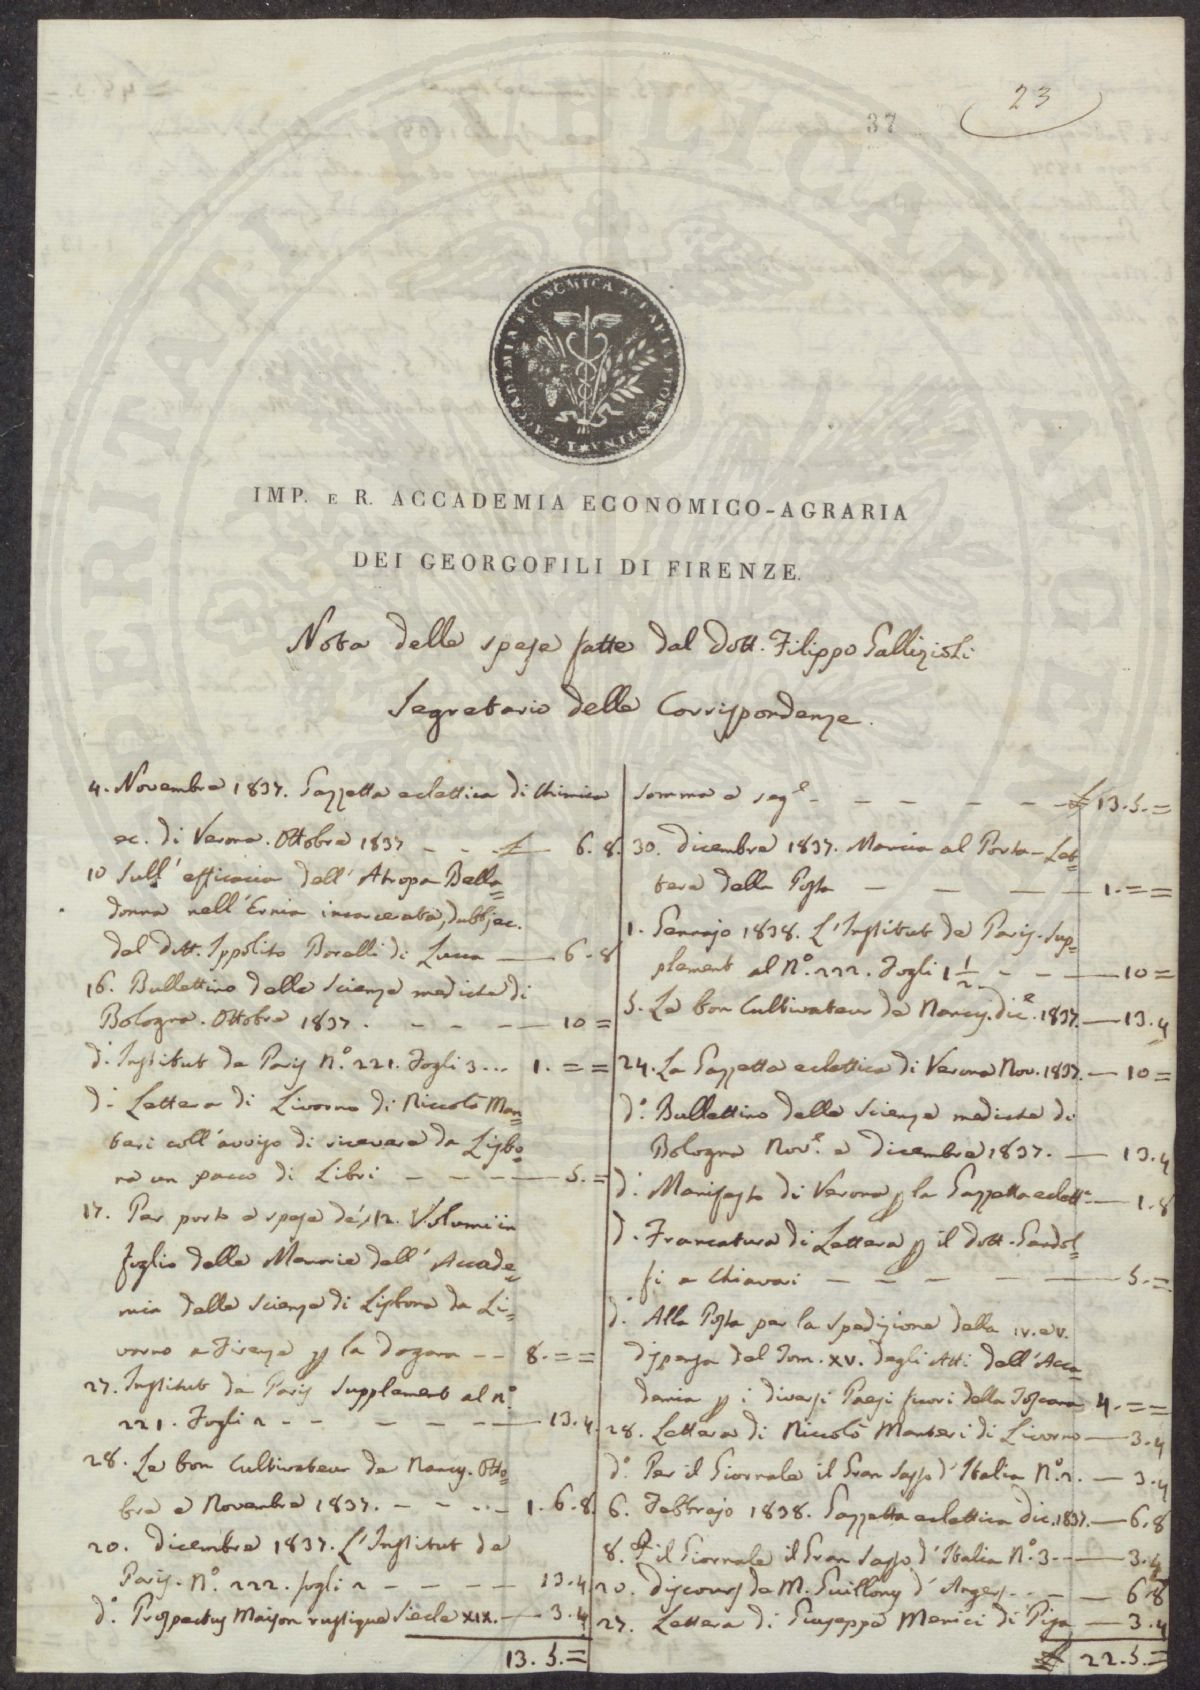 23
37
PROSPERITATI PUBLICAE
L'ACCADEMIA ECONOMICA AGRARIA FIORENTINA
IMP. E R. ACCADEMIA ECONOMICO-AGRARIA
DEI GEORGOFILI DI FIRENZE.
Nota delle spese fatte dal Dott. Filippo Gallizioli
Segretario delle Corrispondenze.
4. Novembre 1837. Gazzetta eclettica di Chimica
ec. di Verona. Ottobre 1837 - - £ 6. 8.
10 Sull' efficacia dell' Atropa Bella=
donna nell' Ernia incarcerata,
del dott. Ippolito Borelli di Lucca — 6. 8
16. Bullettino delle Scienze mediche di
Bologna. Ottobre 1837. - - - — 10 =
d.º Institut de Paris N.º 221. Fogli 3... 1. = =
d.º Lettera di Livorno di Niccolò Man=
teri coll' avviso di ricevere da Lisbo=
na un pacco di Libri - - - — 5. =
17. Per porto e spese de' 12. Volumi in
foglio delle Memorie dell' Accade=
mia delle Scienze di Lisbona da Li=
vorno a Firenze p la dogana - - 8. = =
27. Institut de Paris Supplement al n.º
221. Fogli 2 - - - - — 13. 4.
28. Le bon Cultivateur de Nancy. Otto=
bre e Novembre 1837. - - - - 1. 6. 8.
20. dicembre 1837. L'Institut de
Paris. N.º 222. fogli 2 - - - - 13. 4
d.º Prospectus Maison rustique Siecle XIX. — 3. 4
13. 5. =
Somma e seg.e - - - - - £ 13. 5. =
30. dicembre 1837. Mancia al Porta-Let=
tere della Posta — — — 1. = =
1. Gennajo 1838. L'Institut de Paris. Sup=
plement al N.º 222. Fogli 1 1/2 - - — 10 =
5. Le bon Cultivateur de Nancy. dic.e 1837. — 13. 4
24. La Gazzetta eclettica di Verona Nov. 1837. — 10 =
d.º Bullettino delle Scienze mediche di
Bologna Nov.e e dicembre 1837. — 13. 4
d.º Manifesto di Verona p la Gazzetta eclett.a — 1. 8
d.º Francatura di Lettera p il dott. Gandol=
fi a Chiavari — — — — 5. =
d.º Alla Posta per la spedizione della IV. e V.
dispensa del Tom. XV. degli Atti dell' Acca=
demia p i diversi Paesi fuori della Toscana 4. = =
28. Lettera di Niccolò Manteri di Livorno — 3. 4
d.º Per il Giornale il Gran Sasso d'Italia N.º 2. — 3. 4
6. Febbrajo 1838. Gazzetta eclettica dic. 1837. — 6. 8
8. p il Giornale il Gran Sasso d'Italia N.º 3 - - — 3. 4
20. Discours de M. Guillory d'Angers. - - — 6. 8
27. Lettera di Giuseppe Menici di Pisa — 3. 4
£ 22. 5. =